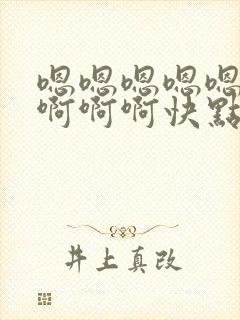 嗯嗯嗯嗯嗯
啊啊啊快點
井上真改